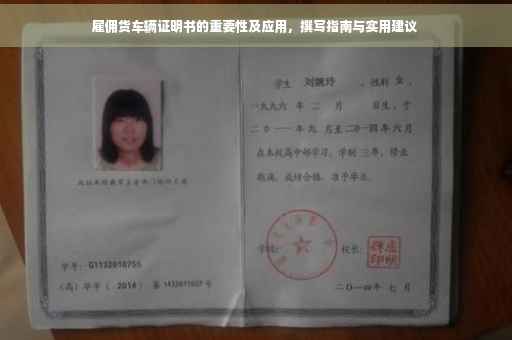 雇佣货车辆证明书的重要性及应用，撰写指南与实用建议
学生 刘婉玲 ，性别 女 ，
一九九六 年 二 月 日生，于
二〇一一年九 月至二〇一四年六月
在本校高中部学习，学制 三年，修业
期满，成绩合格，准予毕业。
学校：
校长：
学号：G1132010755
（高）毕字（ 2014 ）第 1432011607 号
二〇一四年 七 月